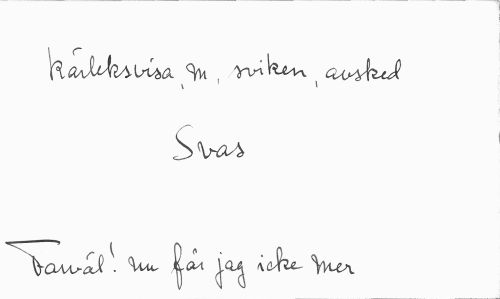 Kärleksvisa, m, sviken, avsked
Svas
Farväl! nu får jag icke mer